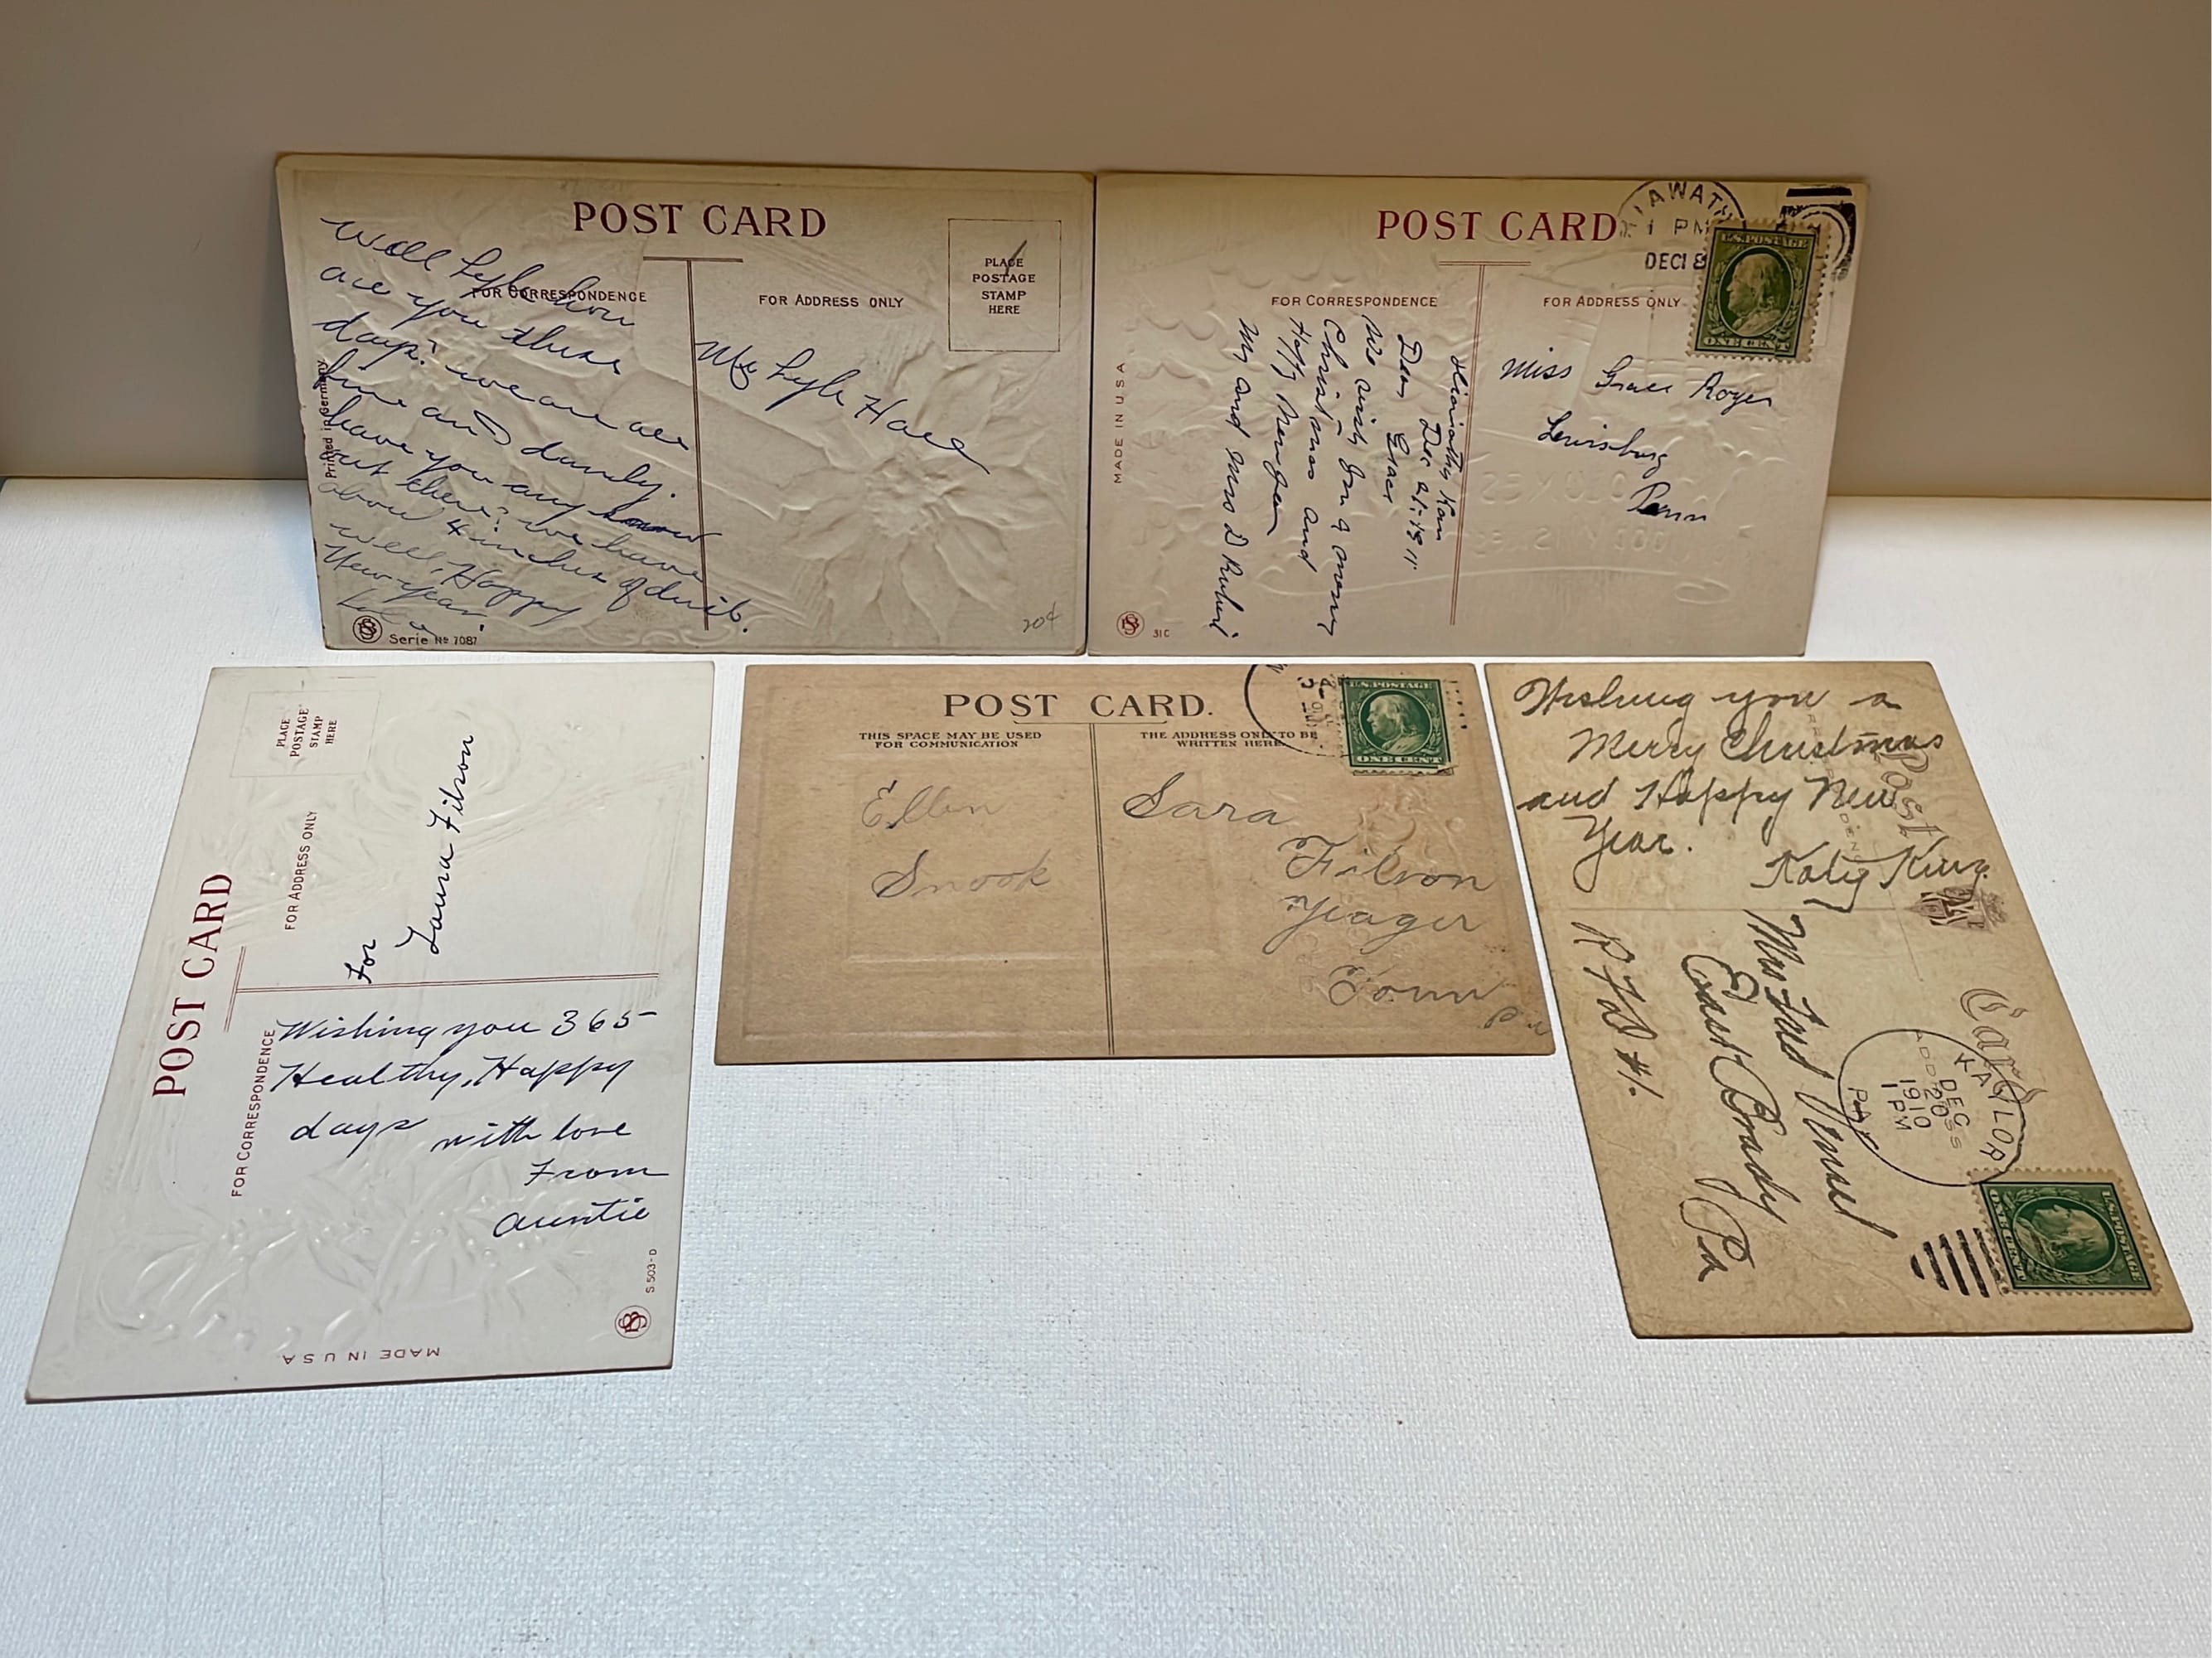 POST CARD
PLACE
POSTAGE
STAMP
HERE
FOR CORRESPONDENCE
FOR ADDRESS ONLY
Well Lyle how
are you these
days? we are all
fine and dandy.
have you any snow
out there? we have
about 4 inches of dust.
well, Happy
New-year.
Mr Lyle
Printed in Germany
Serie No 7087
20¢
POST CARD
IAWATH
1 PM
DEC 18
U.S. POSTAGE
ONE CENT
FOR CORRESPONDENCE
FOR ADDRESS ONLY
MADE IN U.S.A.
Kan
Dec 1911
Dear Grace
We wish you a merry
Christmas and
Happy New year
Mr and Mrs D
Miss Grace Royer
Lewisburg
Penn
31C
POST CARD
PLACE
POSTAGE
STAMP
HERE
FOR ADDRESS ONLY
For
Laura Filson
FOR CORRESPONDENCE
Wishing you 365
Healthy, Happy
days with love
From
Auntie
S.503-D
MADE IN U.S.A.
POST CARD.
THIS SPACE MAY BE USED
FOR COMMUNICATION
THE ADDRESS ONLY TO BE
WRITTEN HERE.
U.S. POSTAGE
ONE CENT
Ellen
Snook
Sara
Filson
Yeager
Town
Wishing you a
Merry Christmas
and Happy New
Year.
Katy King
Post Card
Mrs Fred
East Brady
Pa
R.F.D. #1.
KAYLOR
DEC
20
1910
1 PM
PA
U.S. POSTAGE
ONE CENT